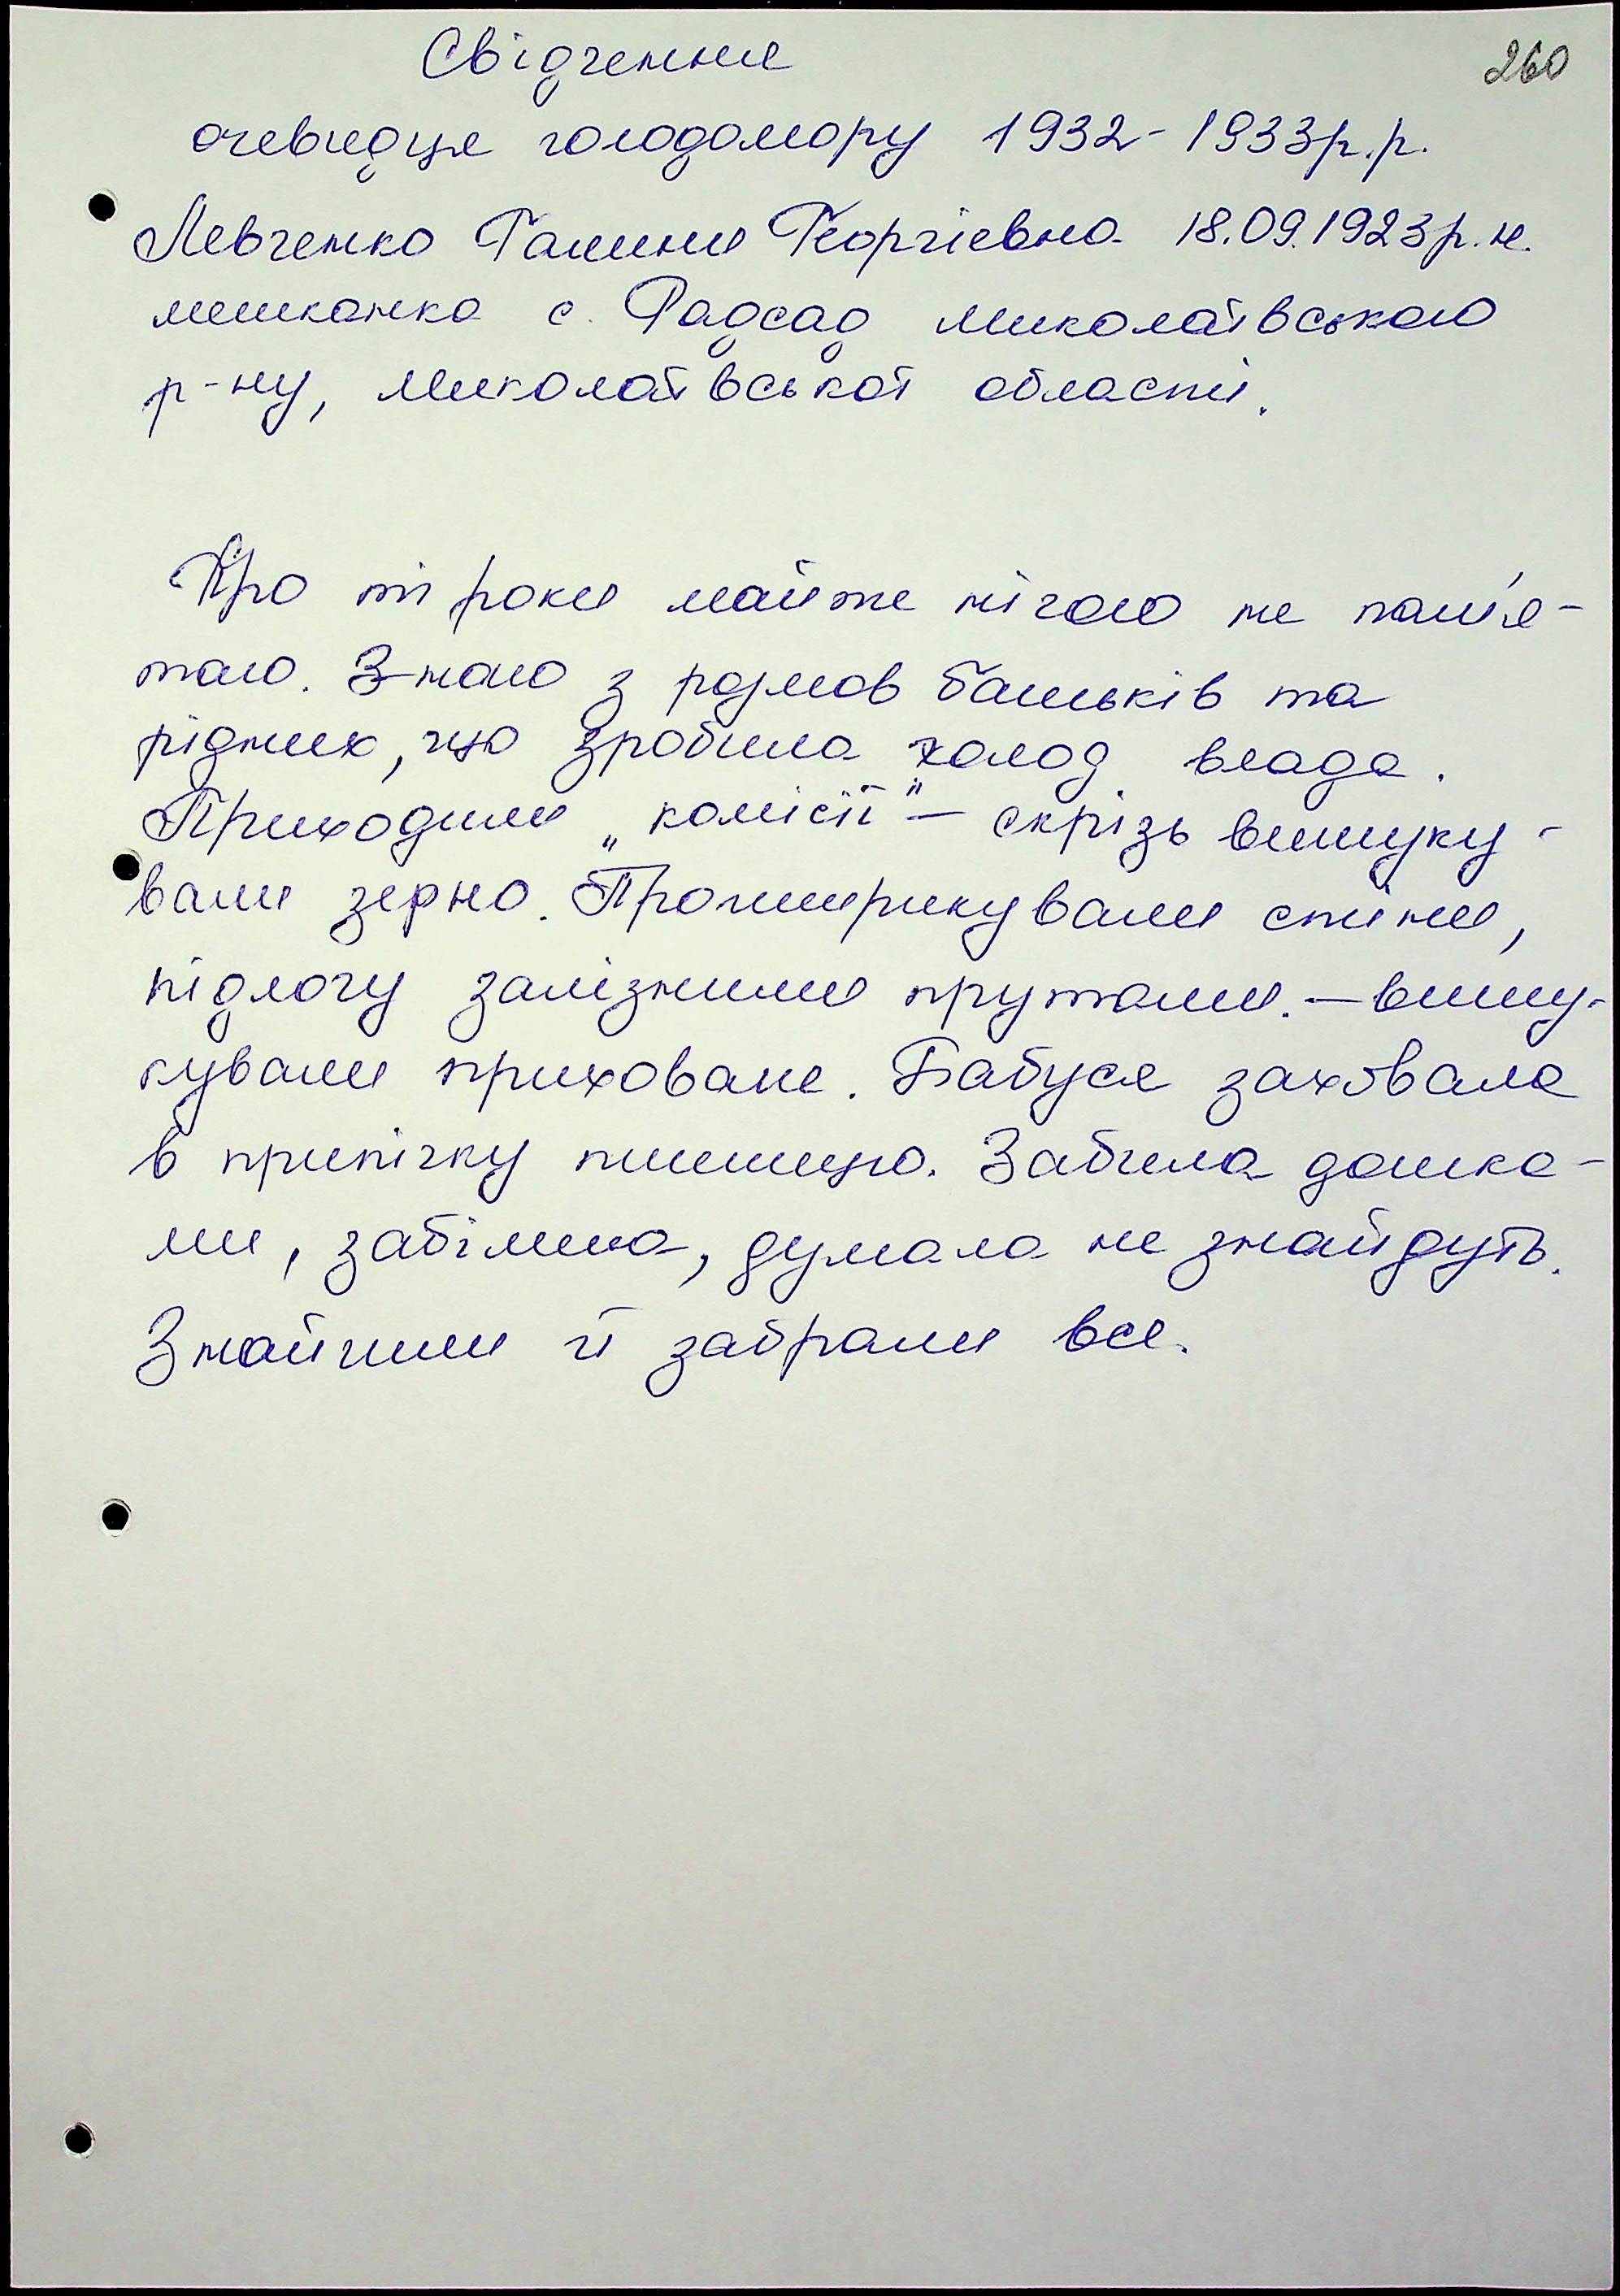 Свідчення
260
очевидця голодомору 1932-1933р.р.
Левченко Галини Георгіевна 18.09.1923р.н.
мешканка с. Радсад миколаївського
р-ну, Миколаївської області.
Про ті роки майже нічого не пам'я-
таю. Знаю з розмов батьків та
рідних, що зробила холод влада.
Приходили „комісії" – скрізь вишуку-
вали зерно. Проширикували стіни,
підлогу залізними прутами. – вишу-
кували приховане. Бабуся заховала
в припічку пшеницю. Забила дошка-
ми, забілила, думала не знайдуть.
Знайшли й забрали все.